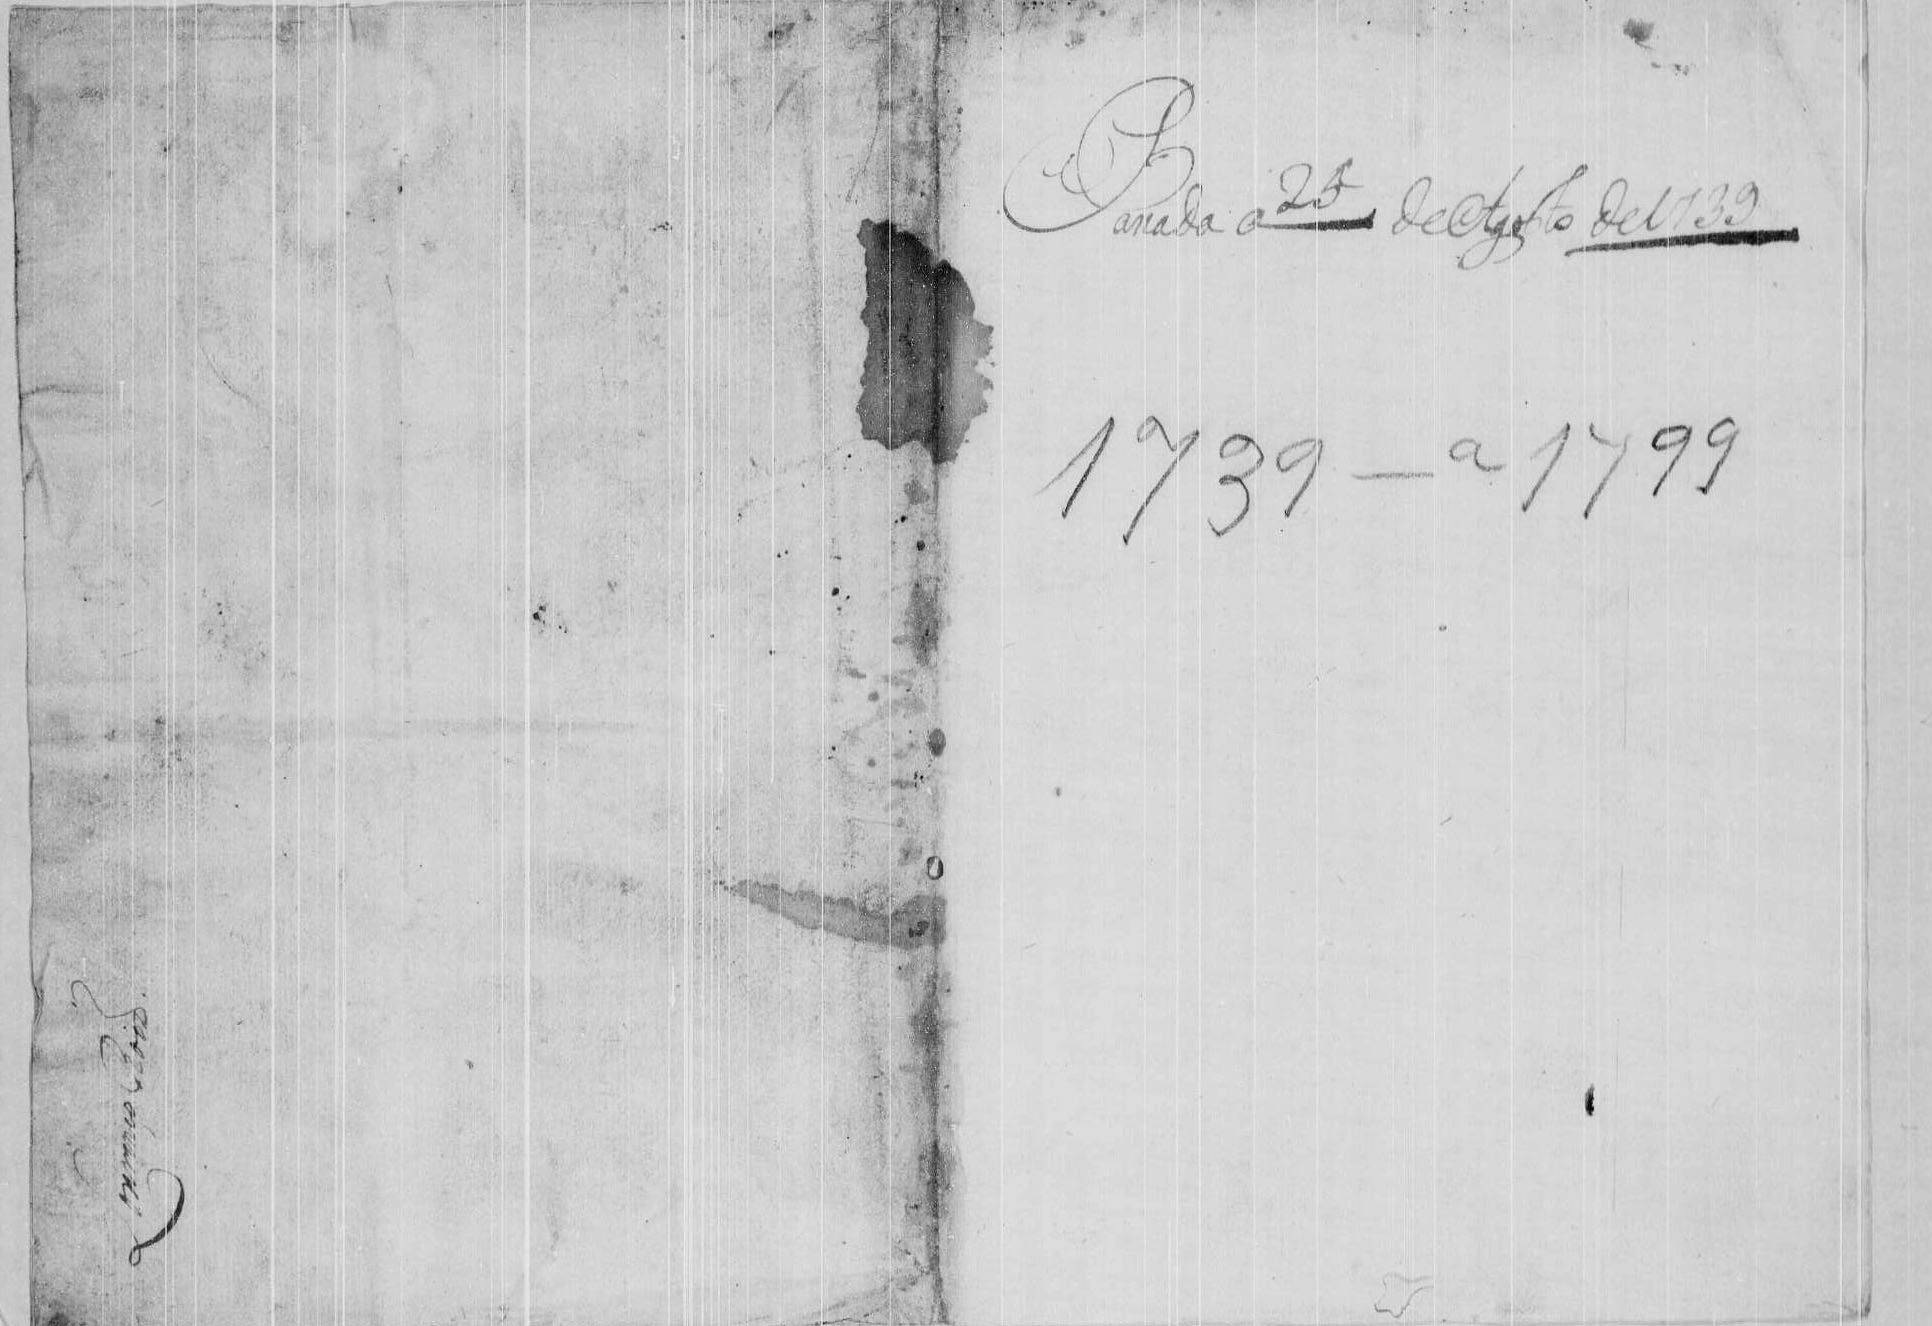 Parada a 25 de Agosto del 739
1739 — a 1799